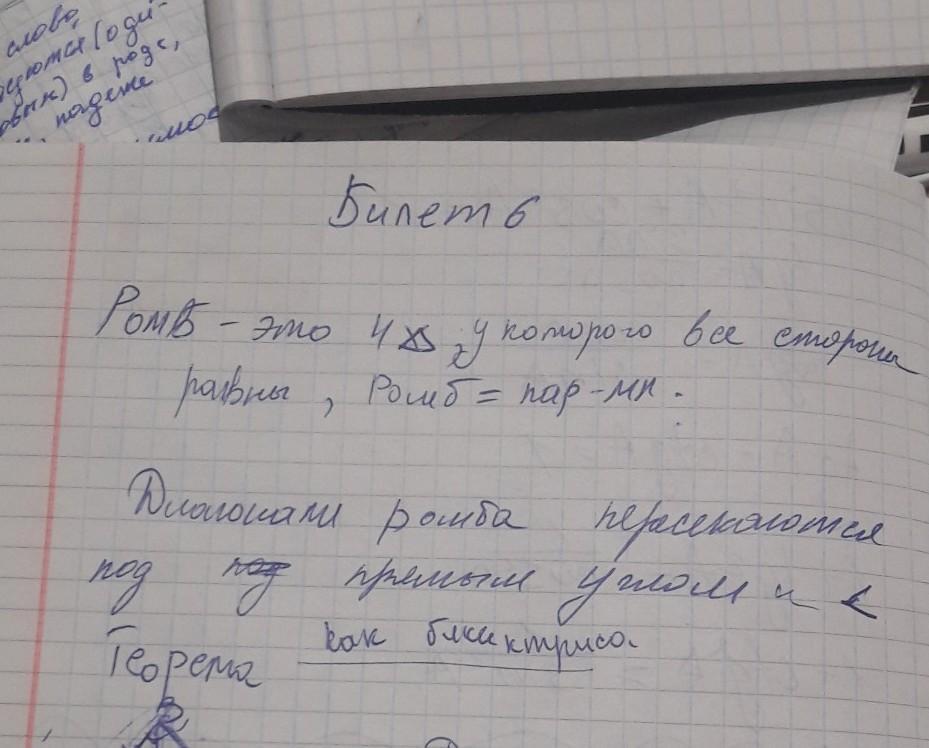 слово,
(оди-
в роде,
падеже
Билет 6
Ромб - это 4 , у которого все стороны
равны, Ромб = пар-мм.
Диагонали ромба пересекаются
под под прямым углом и <
как биссиктриса
Теорема